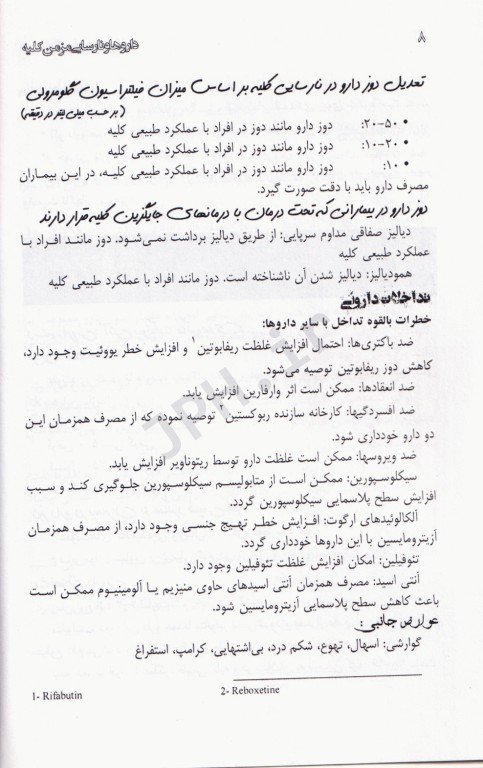 ۸
داروها و نارسایی مزمن کلیه
تعدیل دوز دارو در نارسایی کلیه بر اساس میزان فیلتراسیون گلومرولی
(بر حسب میلی لیتر در دقیقه)
• ۵۰-۲۰: دوز دارو مانند دوز در افراد با عملکرد طبیعی کلیه
• ۲۰-۱۰: دوز دارو مانند دوز در افراد با عملکرد طبیعی کلیه
• ۱۰: دوز دارو مانند دوز در افراد با عملکرد طبیعی کلیـه، در این بیماران
مصرف دارو باید با دقت صورت گیرد.
دوز دارو در بیمارانی که تحت درمان با درمانهای جایگزین کلیه قرار دارند
دیالیز صفاقی مداوم سرپایی: از طریق دیالیز برداشت نمی‌شود. دوز ماننـد افـراد بـا
عملکرد طبیعی کلیه
همودیالیز: دیالیز شدن آن ناشناخته است. دوز مانند افراد با عملکرد طبیعی کلیه
تداخلات دارویی
خطرات بالقوه تداخل با سایر داروها:
ضد باکتری‌ها: احتمال افزایش غلظت ریفابوتین¹ و افزایش خطر یووئیت وجود دارد،
کاهش دوز ریفابوتین توصیه می‌شود.
ضد انعقادها: ممکن است اثر وارفارین افزایش یابد.
ضد افسردگیها: کارخانه سازنده ربوکستین² توصیه نموده که از مصرف همزمان ایـن
دو دارو خودداری شود.
ضد ویروسها: ممکن است غلظت دارو توسط ریتوناویر افزایش یابد.
سیکلوسپورین: ممکـن است از متابولیسـم سیکلوسپورین جلوگیری کنـد و سـبب
افزایش سطح پلاسمایی سیکلوسپورین گردد.
آلکالوئیدهای ارگوت: افـزایش خطـر تهـیج جنسـی وجـود دارد، از مصـرف همزمـان
آزیترومایسین با این داروها خودداری گردد.
تئوفیلین: امکان افزایش غلظت تئوفیلین وجود دارد.
آنتی اسید: مصرف همزمان آنتی اسیدهای حاوی منیزیم یـا آلومینیـوم ممکـن اسـت
باعث کاهش سطح پلاسمایی آزیترومایسین شود.
عوارض جانبی:
گوارشی: اسهال، تهوع، شکم درد، بی‌اشتهایی، کرامپ، استفراغ
1- Rifabutin
2- Reboxetine
JPH.ir